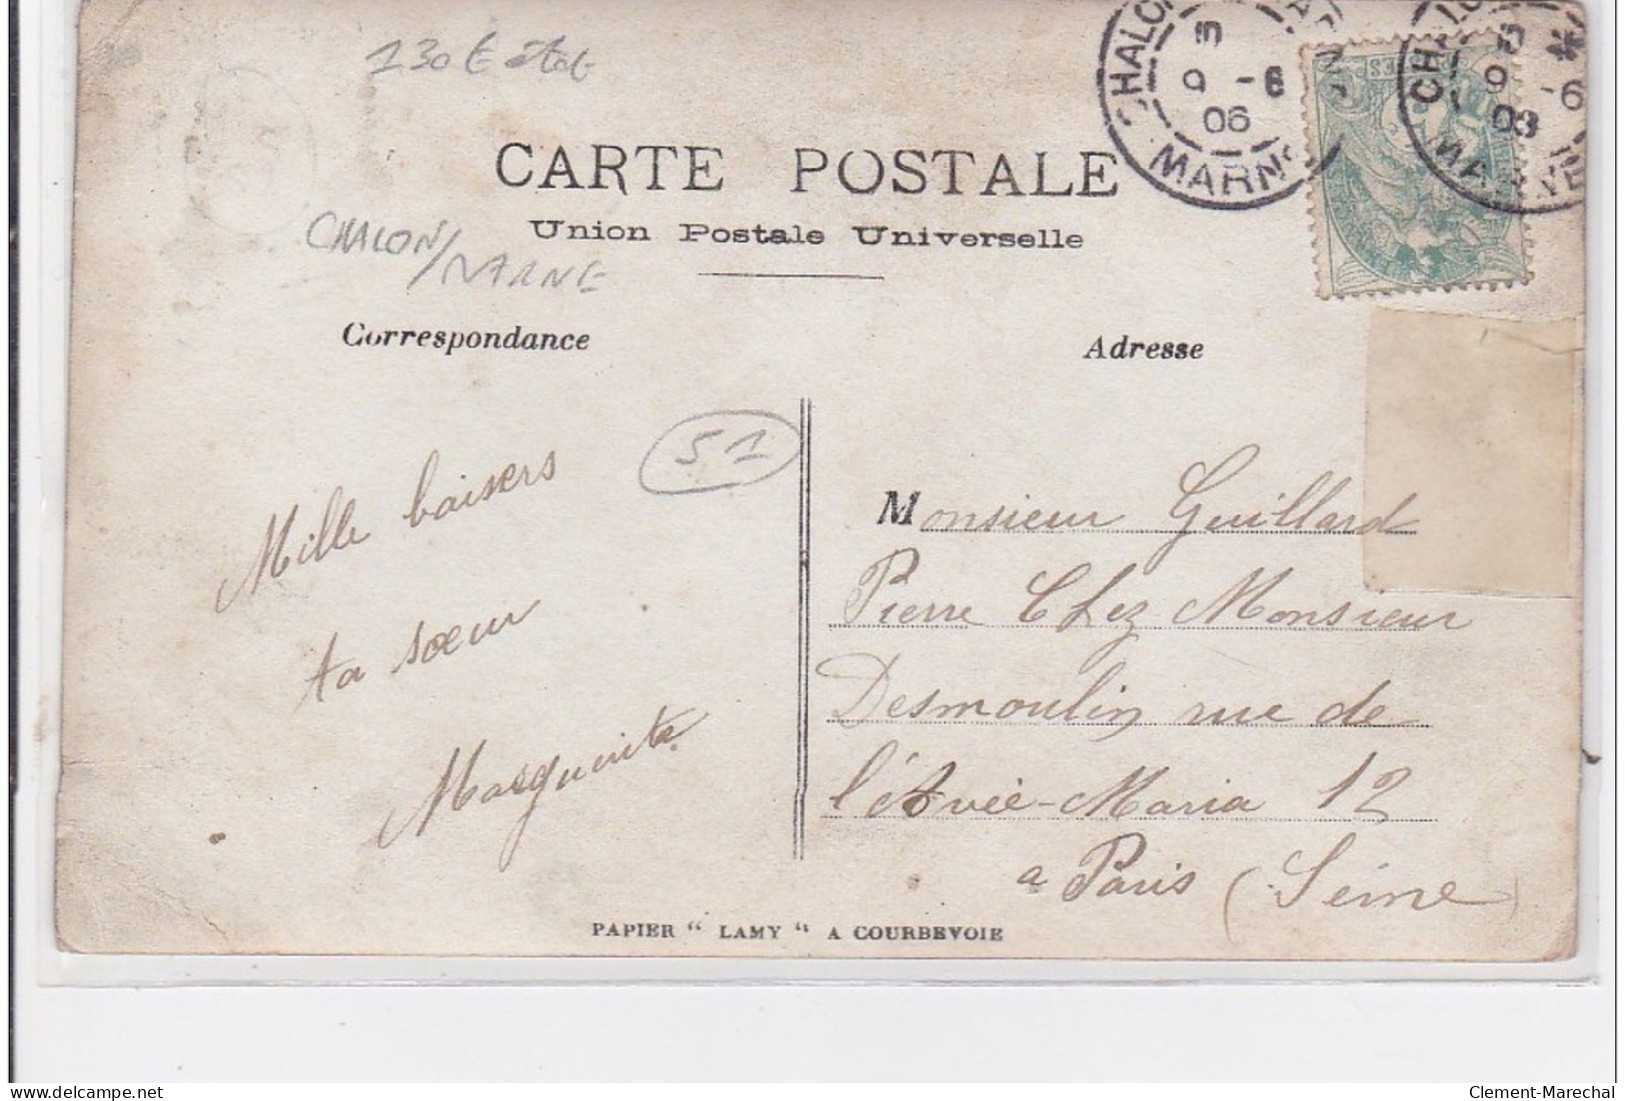 130 € état
CHALON
9 -6
06
MARNE
9 -6
CARTE POSTALE
Union Postale Universelle
CHALON/
MARNE
Correspondance
Adresse
51
Mille baisers
ta sœur
Marguerite
Monsieur Guillard
Pierre Chez Monsieur
Desmoulin rue de
l'Avée-Maria 12
a Paris (Seine)
PAPIER “ LAMY “ A COURBEVOIE
Clement-Marechal